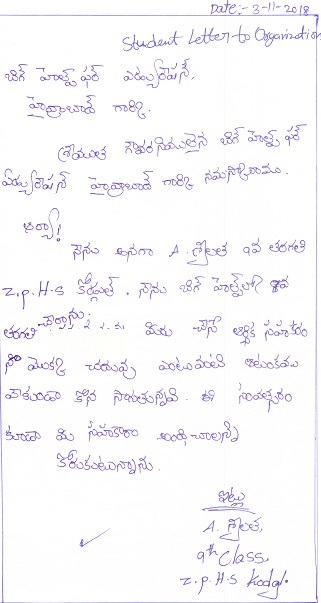 Date:- 3-11-2018
Student Letter to Organization
బిగ్ హెల్ప్ ఫర్ ఎడ్యుకేషన్,
హైద్రాబాద్ గారికి.
శ్రీయుత గౌరవనీయులైన బిగ్ హెల్ప్ ఫర్
ఎడ్యుకేషన్ హైద్రాబాద్ గారికి నమస్కారాము.
ఆర్యా!
నేను అనగా A. శ్రీలత 9వ తరగతి
Z.P.H.S కోడ్గల్. నేను బిగ్ హెల్ప్‌లో 8వ
తరగతి చేరాను. మీరు చేసే ఆర్థిక సహకారం
నా యొక్క చదువు ఎటువంటి ఆటంకము
లేకుండా కొన సాగుతున్నది. ఈ సంవత్సరం
కూడా మీ సహకారం అందించాలని
కోరుకుంటున్నాను.
ఇట్లు
A. శ్రీలత,
9th Class,
Z.P.H.S Kodgl.